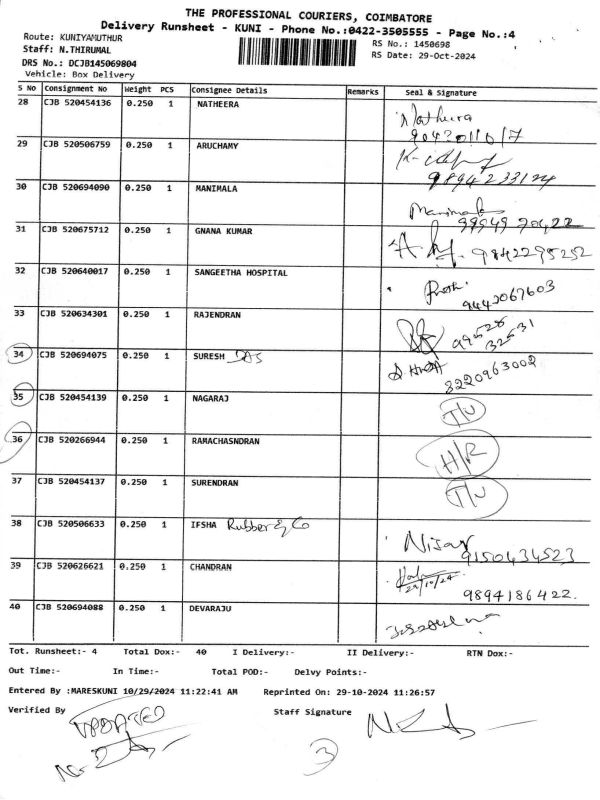 THE PROFESSIONAL COURIERS, COIMBATORE
Delivery Runsheet - KUNI - Phone No.:0422-3505555 - Page No.:4
Route: KUNIYAMUTHUR
RS No.: 1450698
Staff: N.THIRUMAL
RS Date: 29-Oct-2024
DRS No.: DCJB145069804
Vehicle: Box Delivery
S No Consignment No Weight PCS Consignee Details Remarks Seal & Signature
28 CJB 520454136 0.250 1 NATHEERA Natheera
9042011017
29 CJB 520506759 0.250 1 ARUCHAMY
9894233124
30 CJB 520694090 0.250 1 MANIMALA Manimala
9994970422
31 CJB 520675712 0.250 1 GNANA KUMAR 9842295252
32 CJB 520640017 0.250 1 SANGEETHA HOSPITAL
9442067603
33 CJB 520634301 0.250 1 RAJENDRAN 99528
32531
34 CJB 520694075 0.250 1 SURESH DAS
8220963002
35 CJB 520454139 0.250 1 NAGARAJ I/U
36 CJB 520266944 0.250 1 RAMACHASNDRAN H/R
37 CJB 520454137 0.250 1 SURENDRAN I/U
38 CJB 520506633 0.250 1 IFSHA Rubber & Co Nisar
9150434523
39 CJB 520626621 0.250 1 CHANDRAN
29/10/24
9894186422.
40 CJB 520694088 0.250 1 DEVARAJU
Tot. Runsheet:- 4 Total Dox:- 40 I Delivery:- II Delivery:- RTN Dox:-
Out Time:- In Time:- Total POD:- Delvy Points:-
Entered By :MARESKUNI 10/29/2024 11:22:41 AM Reprinted On: 29-10-2024 11:26:57
Verified By Staff Signature
UPDATED
3